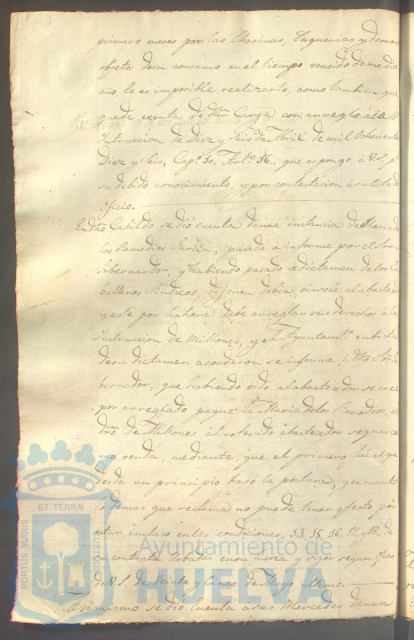 primero meses por las Harinas, y demas
objeto de su consumo en el tiempo vencido de medio
año, le es imposible realizarlo, como tambien que
quede exenta de dha Carga con arreglo a la
Instruccion de Diez y Seis de Abril de mil Ochocientos
Diez y Seis, Cap.º 30. Art.º 16. que expongo á V.S. p.ª
su debido conocimiento, y por contestacion á su citado
oficio.
En dho Cabildo se dió cuenta de una instancia de Maria de
los Remedios Garcia, pasada á informe por el Sor
Gobernador, y habiendo pasado a dictamen de los Ca
balleros Sindicos, dijeron debia oirse al abastecedor
y este por ahora debe arreglar sus derechos á la
Instruccion de Millones, y el Ayuntam.to en vista
de su dictamen acordaron se informe á dho Sor Go
bernador, que habiendo oido al abastecedor se cree
por arreglado pague la Maria de los Remedios, el
dro de Millones al referido abastecedor segun
renda, mediante, que el primero fué el que
desde un principio basó la postura, y en quanto
lo demas que reclama no puede tener efecto por
estar incluso en las condiciones, 13. 15. 16. 17. y 18. de
la contrata de
de V.S. de Veinte y Cinco de Mayo ultimo.
Asimismo se dió Cuenta a sus Mercedes de una
PORTUS MARIS
ET TERRÆ
CUSTODIA
Ayuntamiento de
HUELVA